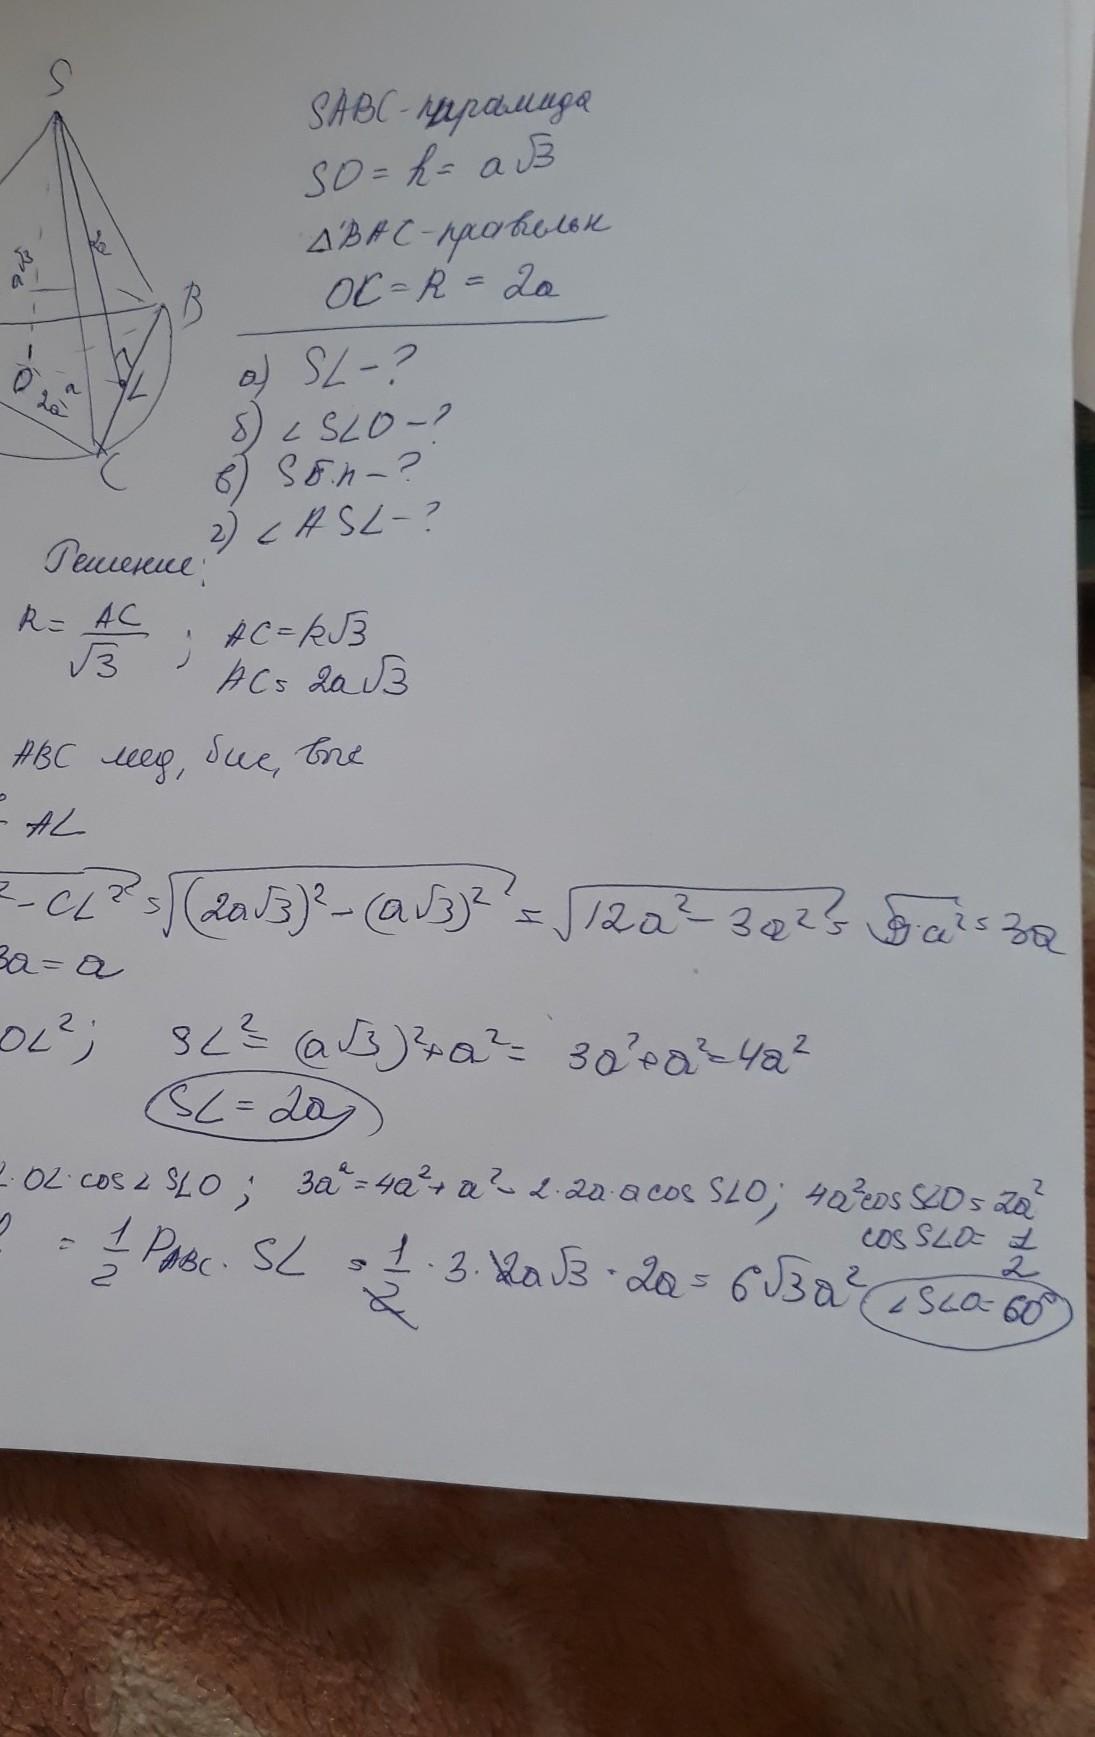 S
SABC-пирамида
SO = h = a√3
△BAC-правельн
OC = R = 2a
a√3
2a
B
O
2a
a
L
C
а) SL - ?
б) ∠SLO - ?
в) Sб.п - ?
г) ∠ASL - ?
Решение:
R = AC/√3 ; AC = R√3
AC = 2a√3
ABC мед, бис, выс
= AL
² - CL² = √((2a√3)² - (a√3)²) = √(12a² - 3a²) = √(9·a²) = 3a
3a = a
OL²; SL² = (a√3)² + a² = 3a² + a² = 4a²
SL = 2a
· OL · cos∠SLO ; 3a² = 4a² + a² - 2·2a·a cos SLO; 4a² cos SLO = 2a²
cos SLO = 1/2
= 1/2 P_ABC · SL = 1/2 · 3 · 2a√3 · 2a = 6√3a²
∠SLO = 60°